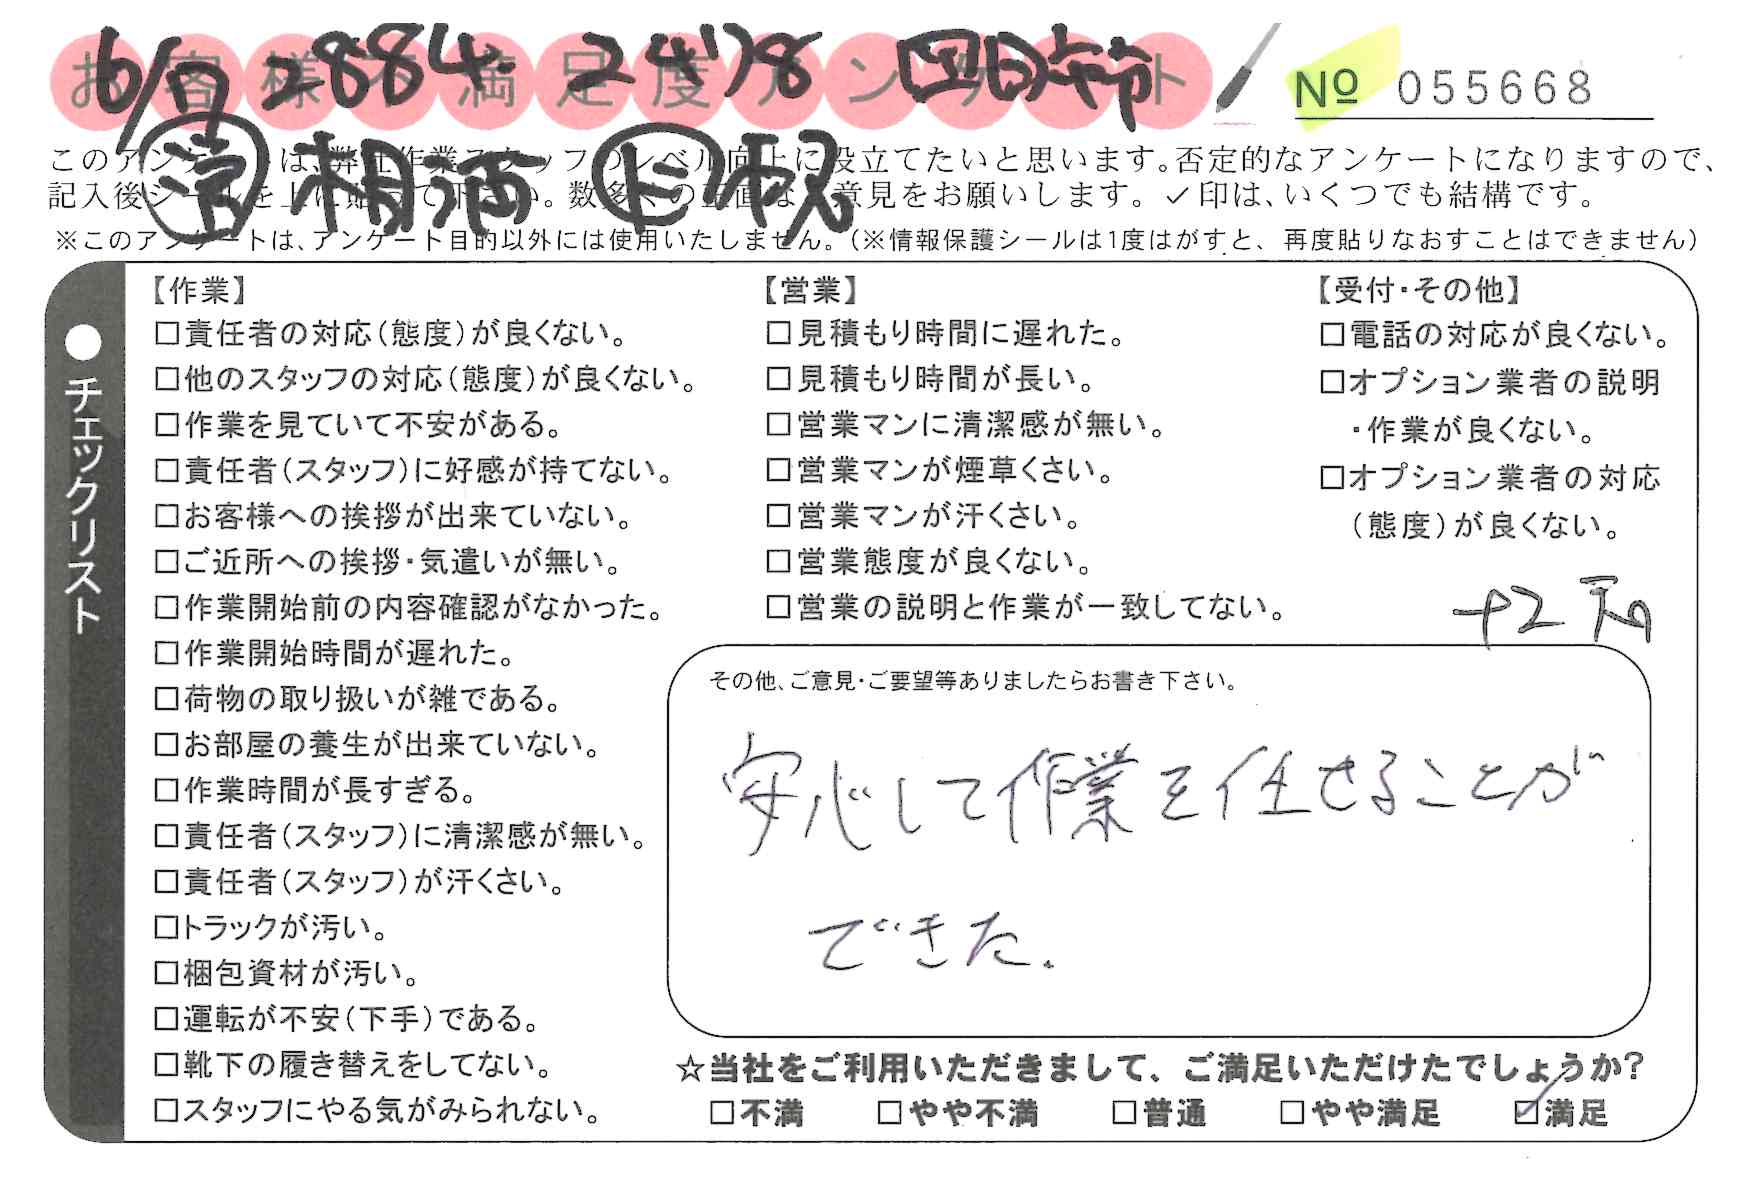 お客様不満足度アンケート
6/7 2884 2478 四日市
No 055668
営 相酒 ド 祝
このアンケートは、弊社作業スタッフのレベル向上に役立てたいと思います。否定的なアンケートになりますので、
記入後シールを上に貼って下さい。数多くの正直なご意見をお願いします。✓印は、いくつでも結構です。
※このアンケートは、アンケート目的以外には使用いたしません。（※情報保護シールは1度はがすと、再度貼りなおすことはできません）
●チェックリスト
【作業】
□責任者の対応（態度）が良くない。
□他のスタッフの対応（態度）が良くない。
□作業を見ていて不安がある。
□責任者（スタッフ）に好感が持てない。
□お客様への挨拶が出来ていない。
□ご近所への挨拶・気遣いが無い。
□作業開始前の内容確認がなかった。
□作業開始時間が遅れた。
□荷物の取り扱いが雑である。
□お部屋の養生が出来ていない。
□作業時間が長すぎる。
□責任者（スタッフ）に清潔感が無い。
□責任者（スタッフ）が汗くさい。
□トラックが汚い。
□梱包資材が汚い。
□運転が不安（下手）である。
□靴下の履き替えをしてない。
□スタッフにやる気がみられない。
【営業】
□見積もり時間に遅れた。
□見積もり時間が長い。
□営業マンに清潔感が無い。
□営業マンが煙草くさい。
□営業マンが汗くさい。
□営業態度が良くない。
□営業の説明と作業が一致してない。
【受付・その他】
□電話の対応が良くない。
□オプション業者の説明
・作業が良くない。
□オプション業者の対応
（態度）が良くない。
その他、ご意見・ご要望等ありましたらお書き下さい。
安心して作業を任せることが
できた.
☆当社をご利用いただきまして、ご満足いただけたでしょうか?
□不満 □やや不満 □普通 □やや満足 ☑満足